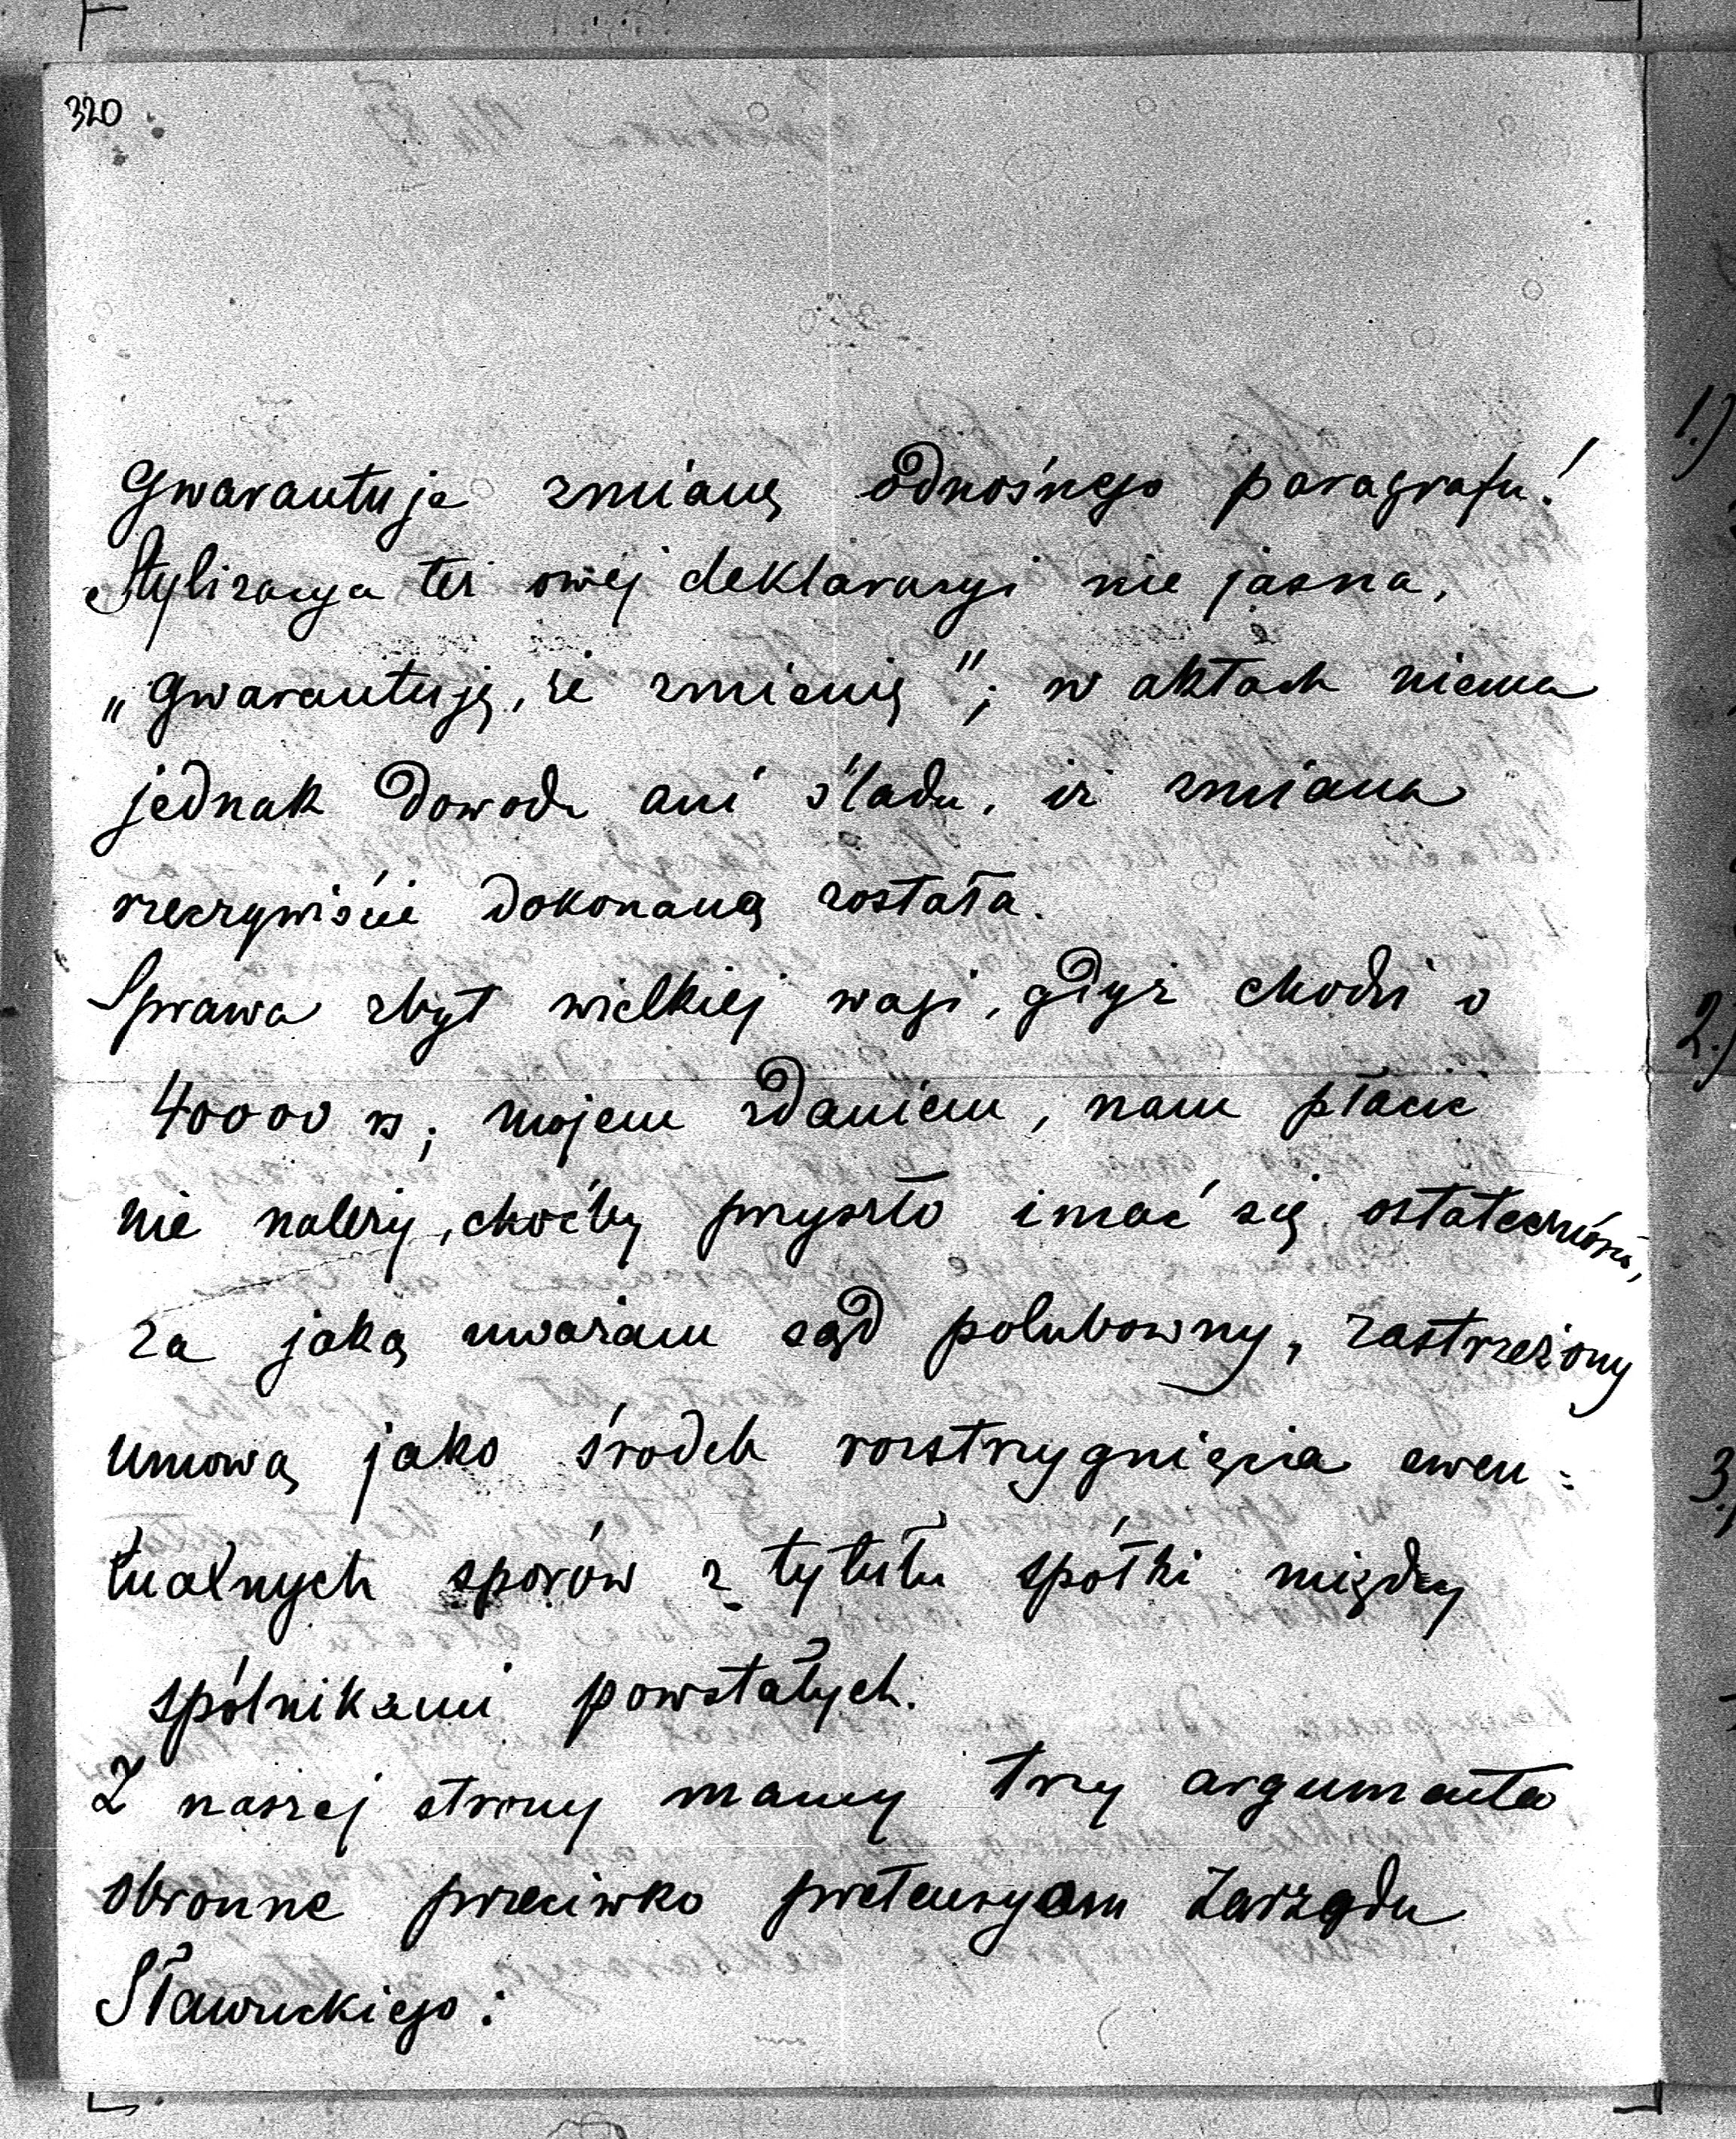 320
gwarantuje zmianę odnośnego paragrafu!
Stylizacya też owéj deklaracyi nie jasna,
„gwarantuję, że zmienię"; w aktach niema
jednak dowodu ani śladu, iż zmiana
rzeczywiście dokonaną została.
Sprawa zbyt wielkiej wagi, gdyż chodzi o
40000 rs; mojem zdaniem, nam płacić
nie należy, choćby przyszło imać się ostateczności,
za jaką uważam sąd polubowny, zastrzeżony
umową jako środek rozstrzygnięcia ewen=
tualnych sporów z tytułu spółki między
spólnikami powstałych.
Z naszej strony mamy trzy argumenta
obronne przeciwko pretensyom Zarządu
Sławuckiego:
1.)
2.)
3.)